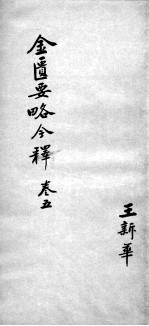 金匱要略今釋 卷五
王新華